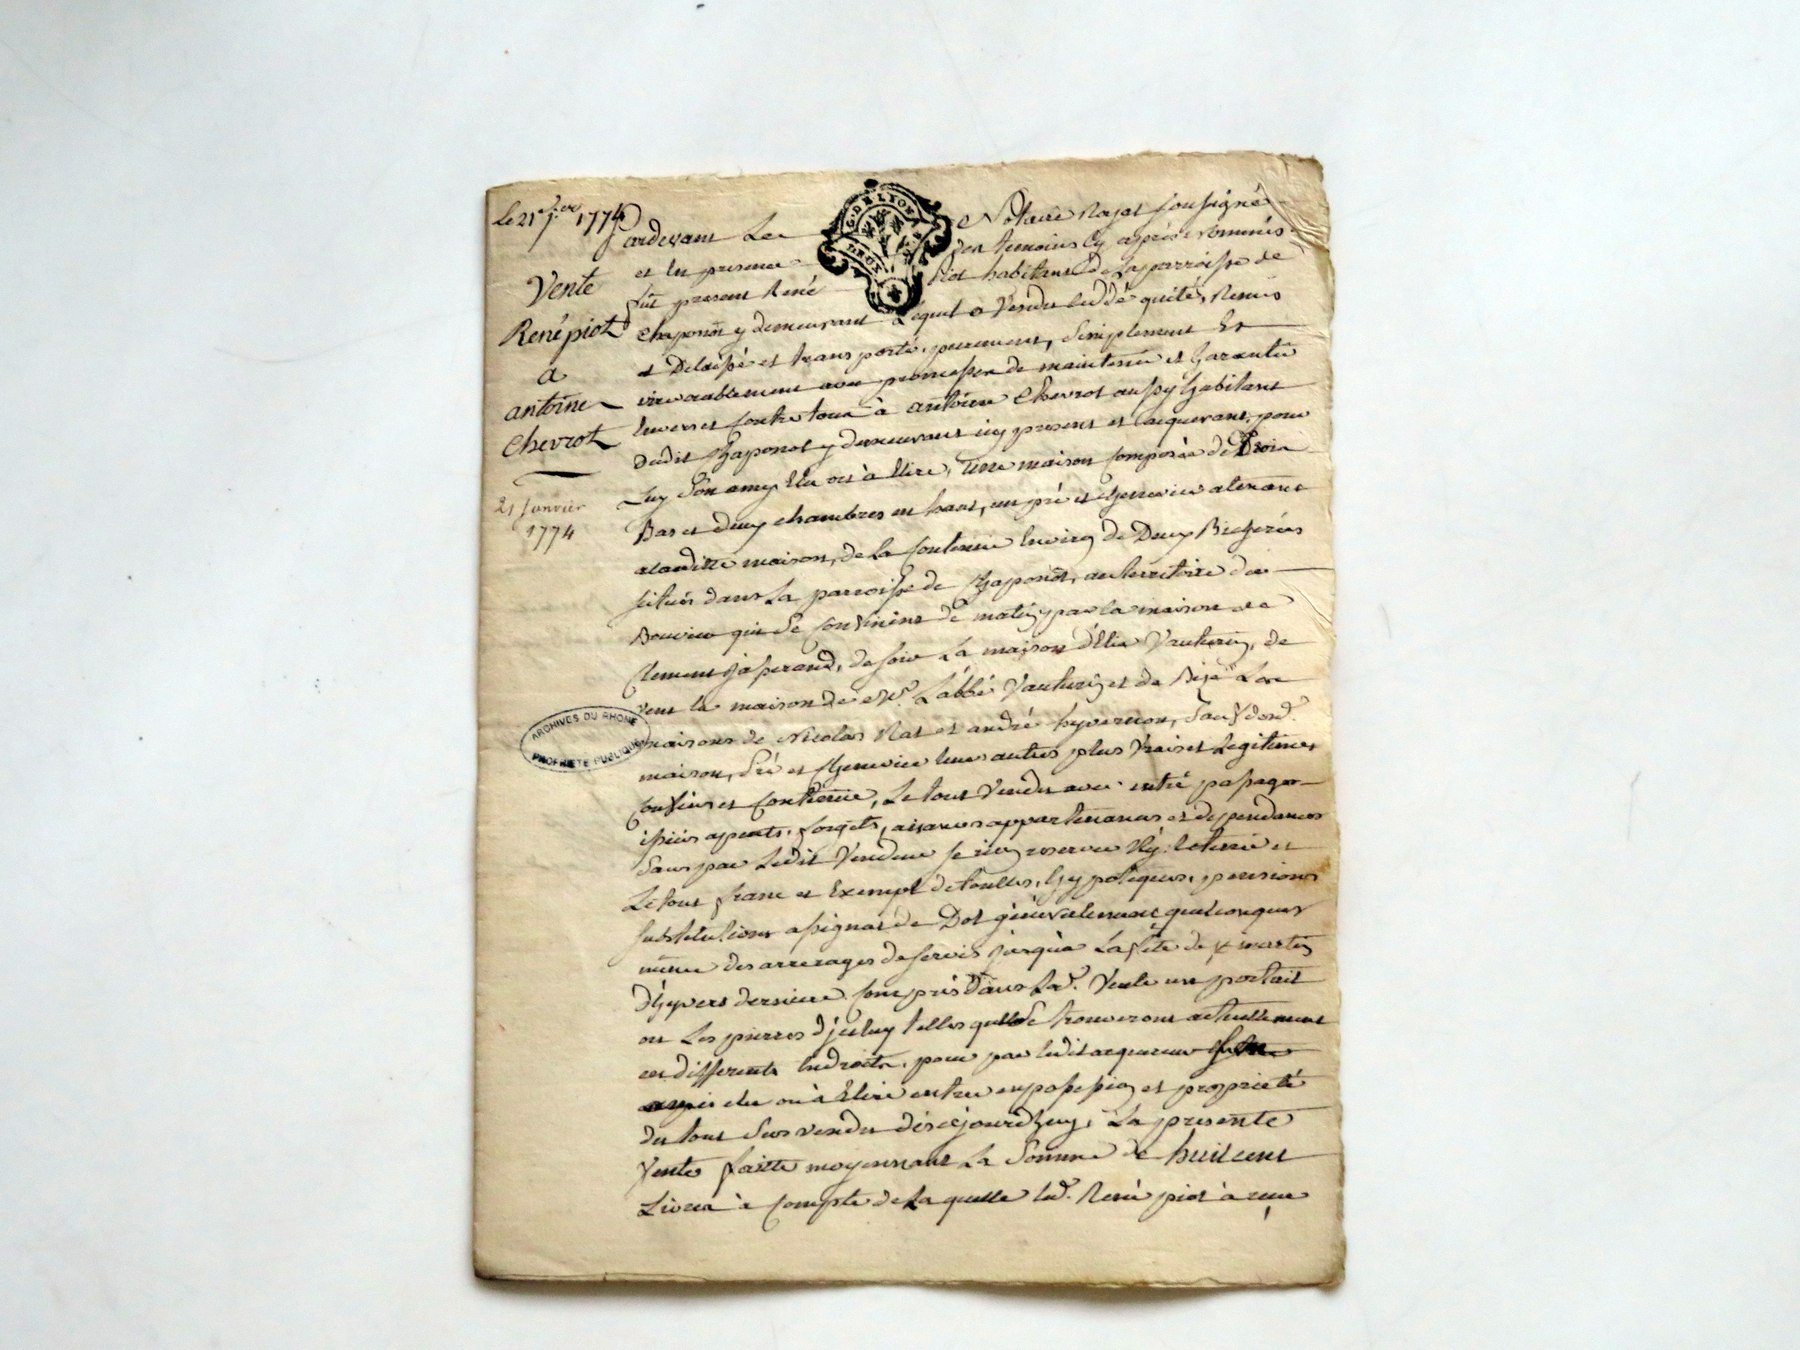 Le 21e j.er 1774
Vente
René piot
a
antoine
Chevrot
21 Janvier
1774
ARCHIVES DU RHONE
PROPRIETE PUBLIQUE
G. DE LYON
DEUX
Pardevant Le Notaire Royal soussigné
et En presence des temoins Cy après nommés
fut present René Piot habitant de La parroisse de
Chaponôt y demeurant Lequel a Vendu cédé quité, Remis
et Delaissé et transporté, purement, simplement Et
irrevocablement avec promesse de maintenir et Garantir
Envers et Contre tous à antoine Chevrot aussy habitant
dudit Chaponot y demeurant icy present et acquerant, pour
Luy Son amy Elu ou à Elire, Une maison Composée de Trois
Bas et deux chambres en haut, un pré et Cheneviere atenant
a laditte maison, de la Contenue Environ de Deux Bicherées
situés dans La parroisse de Chaponôt, au territoire du
Bouvier qui se Confinent de matin par la maison de
Clement de soir La maison d'Elie Vautherin, de
vent la maison de Mr. L'abbé Vautherin et de Bize Les
maisons de Nicolas Rat et andré hyvernon, Sauf desd.
maison, Pré et Cheneviere leurs autres plus Vrais et Legitimes
Confins et Contenue, Le tout Vendu avec entrée passages
issües apents, forgets, aisances appartenances et dependances
Sans par Ledit Vendeur se rien reserver Ny retenir et
Le tout franc et Exempt de touttes, hypoteques, pensions
substitutions assignat de Dot generalement quelconques
même des arrerages de servis jusqu'a La fete de St martin
d'hyvers derniere Compris Dans Lad. Vente un portail
ou Les pierres d'jceluy telles quelle se trouveront actuellement
en differents Endroits, pour par ledit acquereur
amis elu ou à Elire entrer en possession et proprieté
du tout Sus vendu dès cejourd'huy, La presente
Vente faitte moyennant La Somme de huit cent
Livres à Compte de La quelle led. René piot à reçu